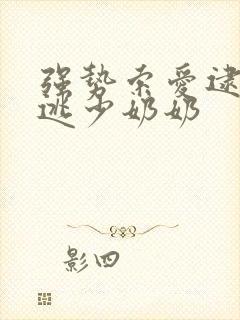 强势索爱逮
逃少奶奶
影四